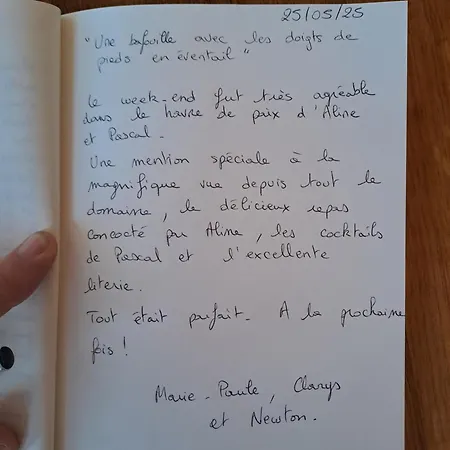 25/05/25
"Une bafouille avec les doigts de
pieds en éventail"
Le week-end fut très agréable
dans le havre de paix d'Aline
et Pascal.
Une mention spéciale à la
magnifique vue depuis tout le
domaine, le délicieux repas
concocté par Aline, les cocktails
de Pascal et l'excellente
literie.
Tout était parfait. A la prochaine
fois !
Marie-Paule, Clarys
et Newton.